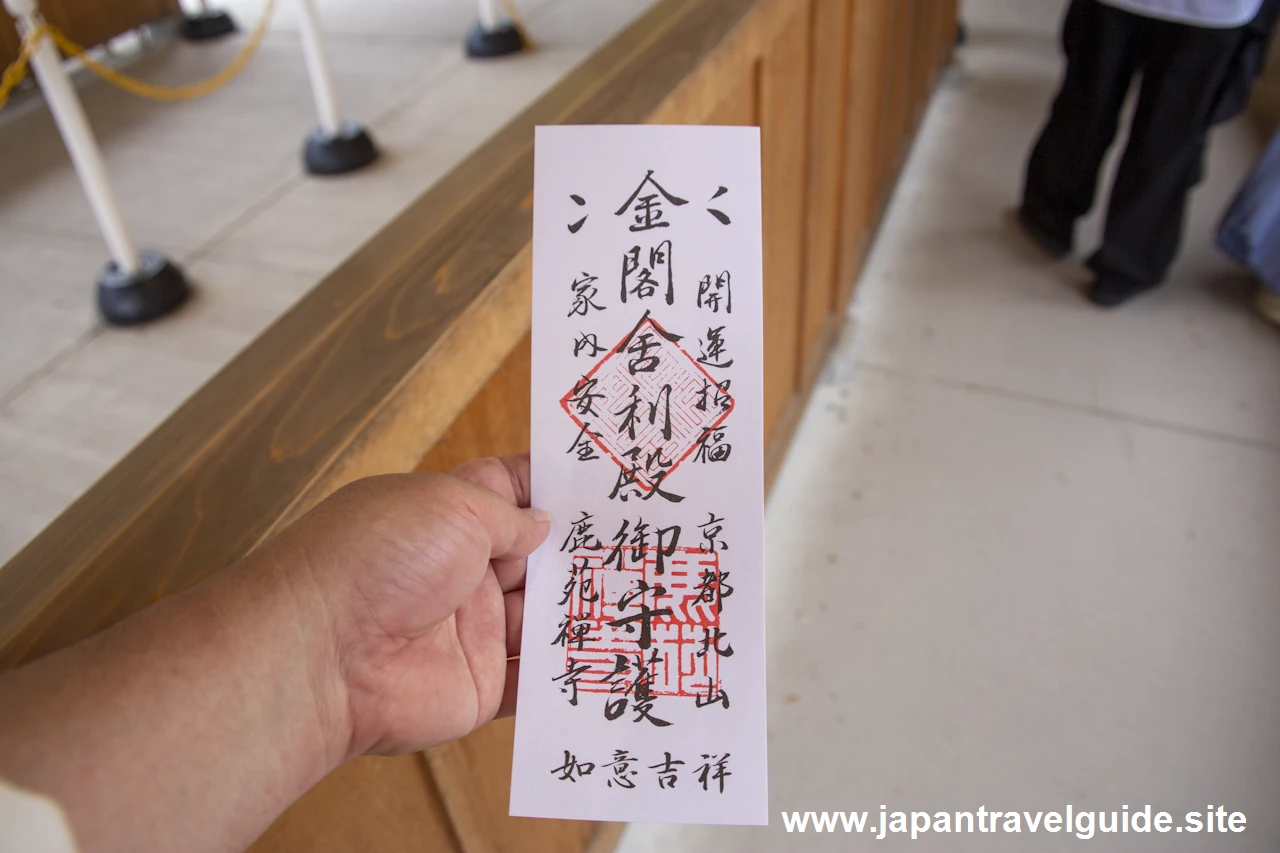 開運招福
京都北山
金閣舎利殿御守護
家内安全
鹿苑禅寺
如意吉祥
www.japantravelguide.site